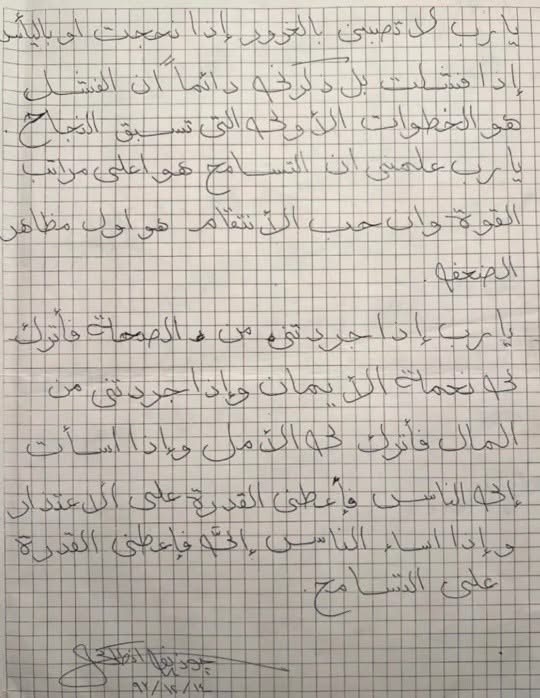 يا رب لا تصبني بالغرور إذا نجحت او باليأس
إذا فشلت بل ذكرني دائماً أن الفشل
هو الخطوات الأولى التي تسبق النجاح.
يا رب علمني ان التسامح هو اعلى مراتب
القوة وان حب الأنتقام هو اول مظاهر
الضعف.
يا رب إذا جردتني من الصحة فأترك
لي نعمة الأيمان وإذا جردتني من
المال فأترك لي الأمل وإذا اسأت
إلى الناس فأعطني القدرة على الاعتذار
وإذا اساء الناس إليّ فإعطني القدرة
على التسامح.